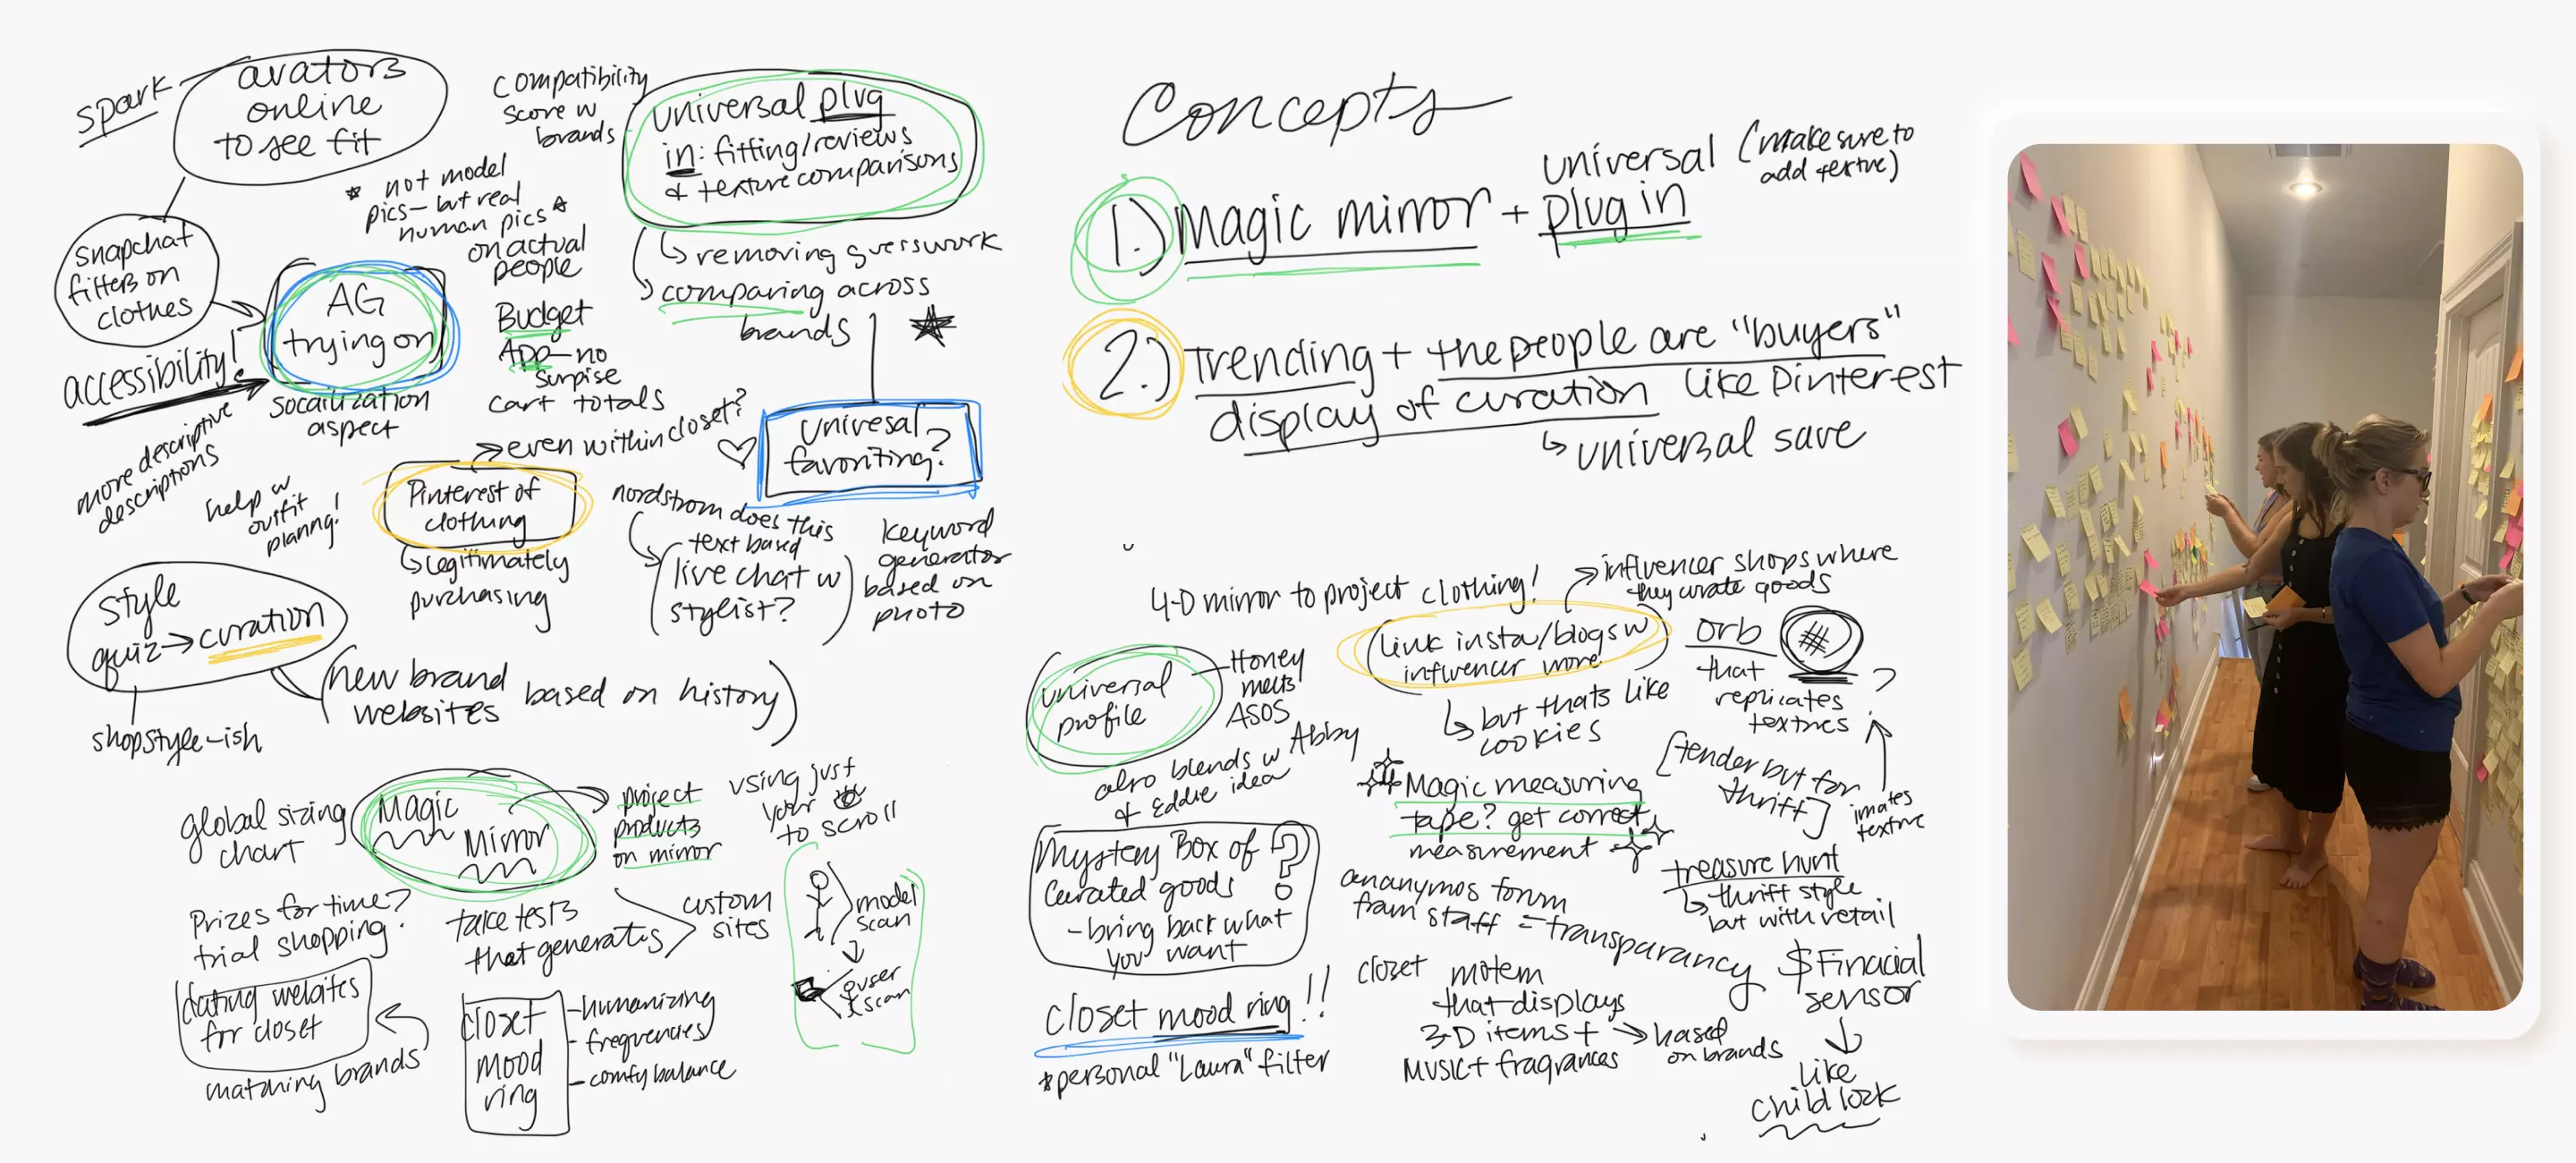 spark
avators
online
to see fit
compatibility
score w
brands
universal plug
in: fitting/reviews
& texture comparisons
* not model
pics - but real
human pics *
on actual
people
snapchat
filters on
clothes
AG
trying on
accessibility!
socailization
aspect
more descriptive
descriptions
Budget
App - no
surpise
cart totals
removing guesswork
comparing across
brands
univesal
favoriting?
even within closet?
Pinterest of
clothing
legitimately
purchasing
help w
outfit
planng!
nordstrom does this
text based
live chat w
stylist?
keyword
generator
based on
photo
style
quiz → curation
shopstyle-ish
(new brand
websites based on history)
global sizing
chart
Magic
Mirror
project
products
on mirror
using just
your
to scroll
Prizes for time?
trial shopping?
take tests
that generates
custom
sites
model
scan
user
scan
dating websites
for closet
matching brands
closet
mood
ring
- humanizing
- frequencies
- comfy balance
Concepts
1.) Magic mirror + universal plug in (make sure to
add textre)
2.) Trending + the people are "buyers"
display of curation like Pinterest
universal save
4-D mirror to project clothing!
influencer shops where
they curate goods
link insta/blogs w
influencer more
but thats like
cookies
orb
that
replicates
textres
?
#
universal
profile
Honey
melts
ASOS
also blends w Abby
& Eddie idea
[tender but for
thriff]
imates
textre
Magic measuring
tape? get correct
measurement
Mystery Box of
curated goods
- bring back what
you want
?
ananymos forum
fram staff = transparancy
treasure hunt
thrift style
but with retail
closet mood ring!!
*personal "Laura" filter
closet motem
that displays
3-D items +
MUSIC + fragrances
→ based
on brands
$ Finacial
sensor
like
child lock